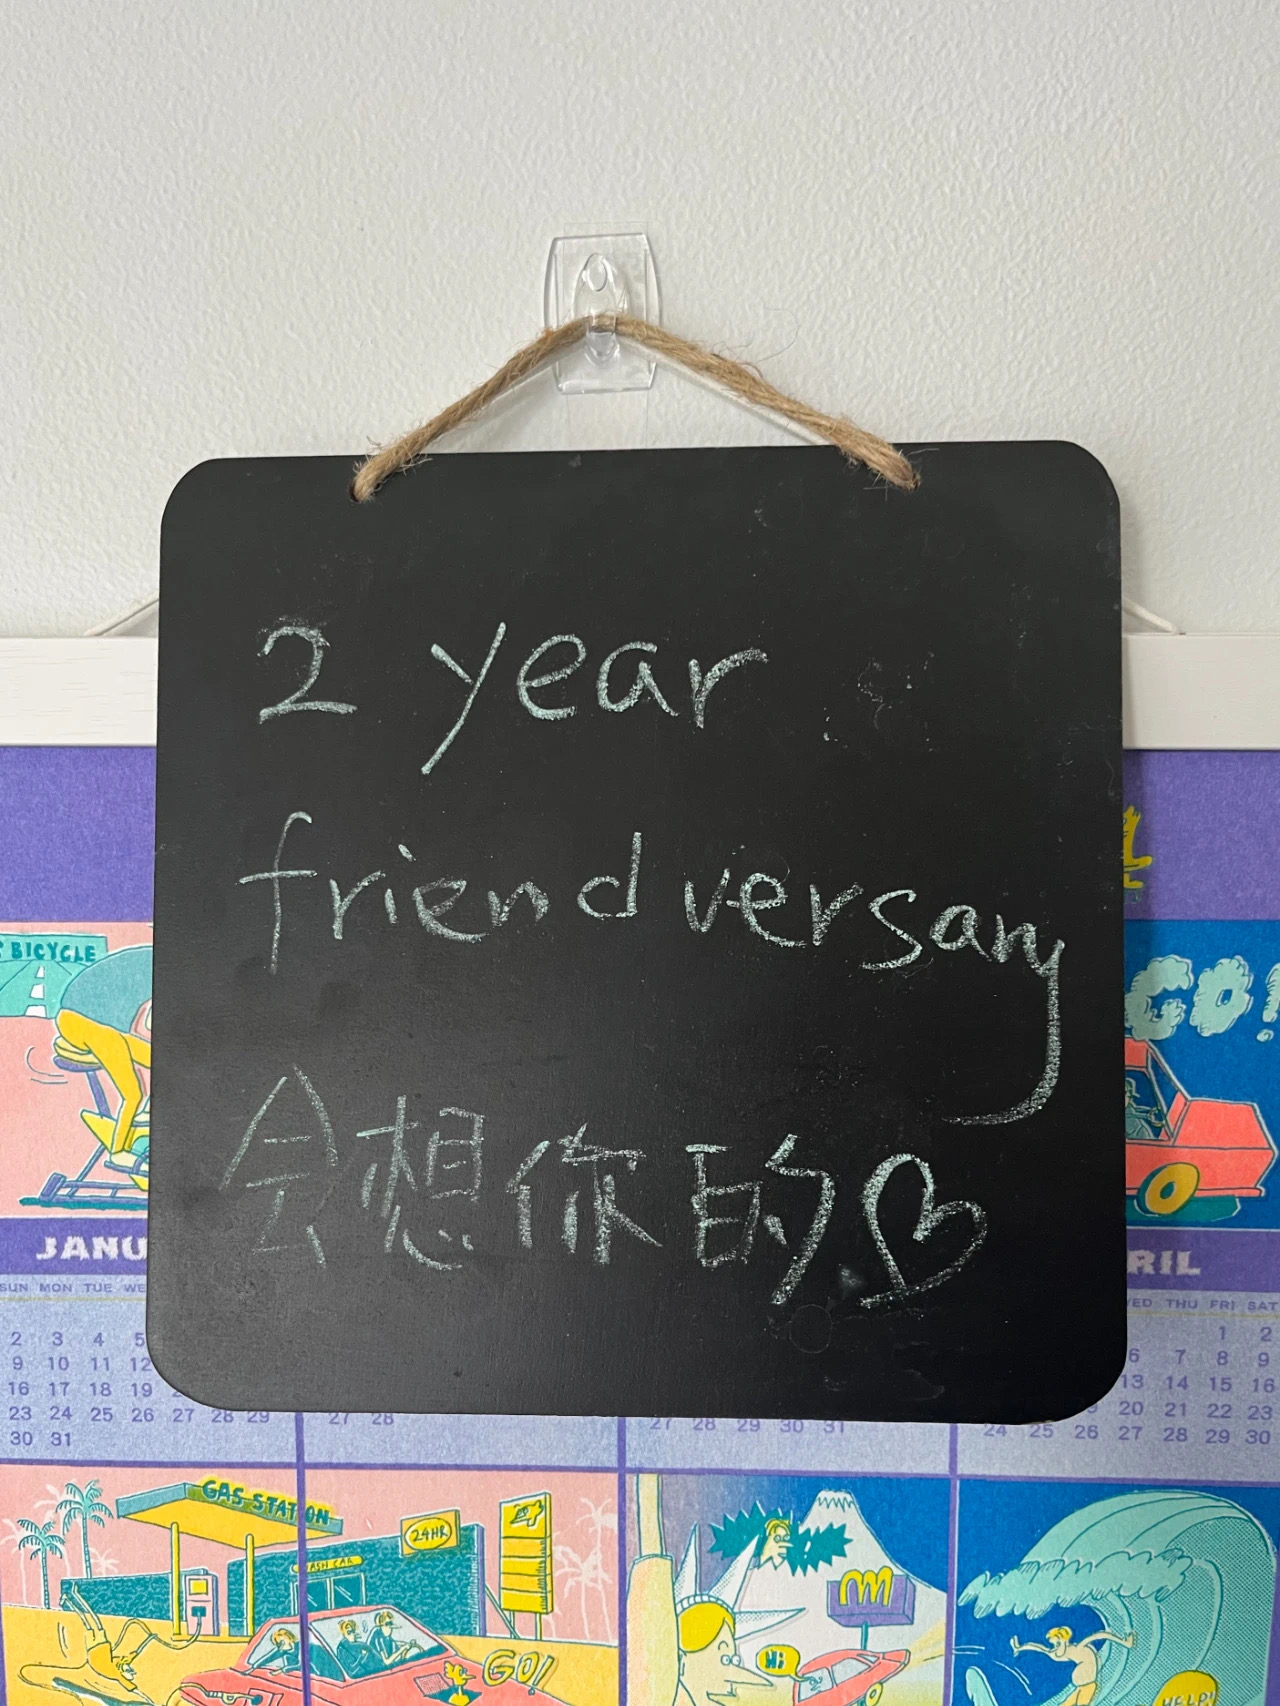 2 year
friendversary
会想你的♡
BICYCLE
GO!
JANU
RIL
SUN MON TUE WE
ED THU FRI SAT
1 2
2 3 4 5
6 7 8 9
9 10 11 12
13 14 15 16
16 17 18 19
20 21 22 23
23 24 25 26 27 28 29
27 28
27 28 29 30 31
24 25 26 27 28 29 30
30 31
GAS STATION
24HR
GO!
Hi
HELP!